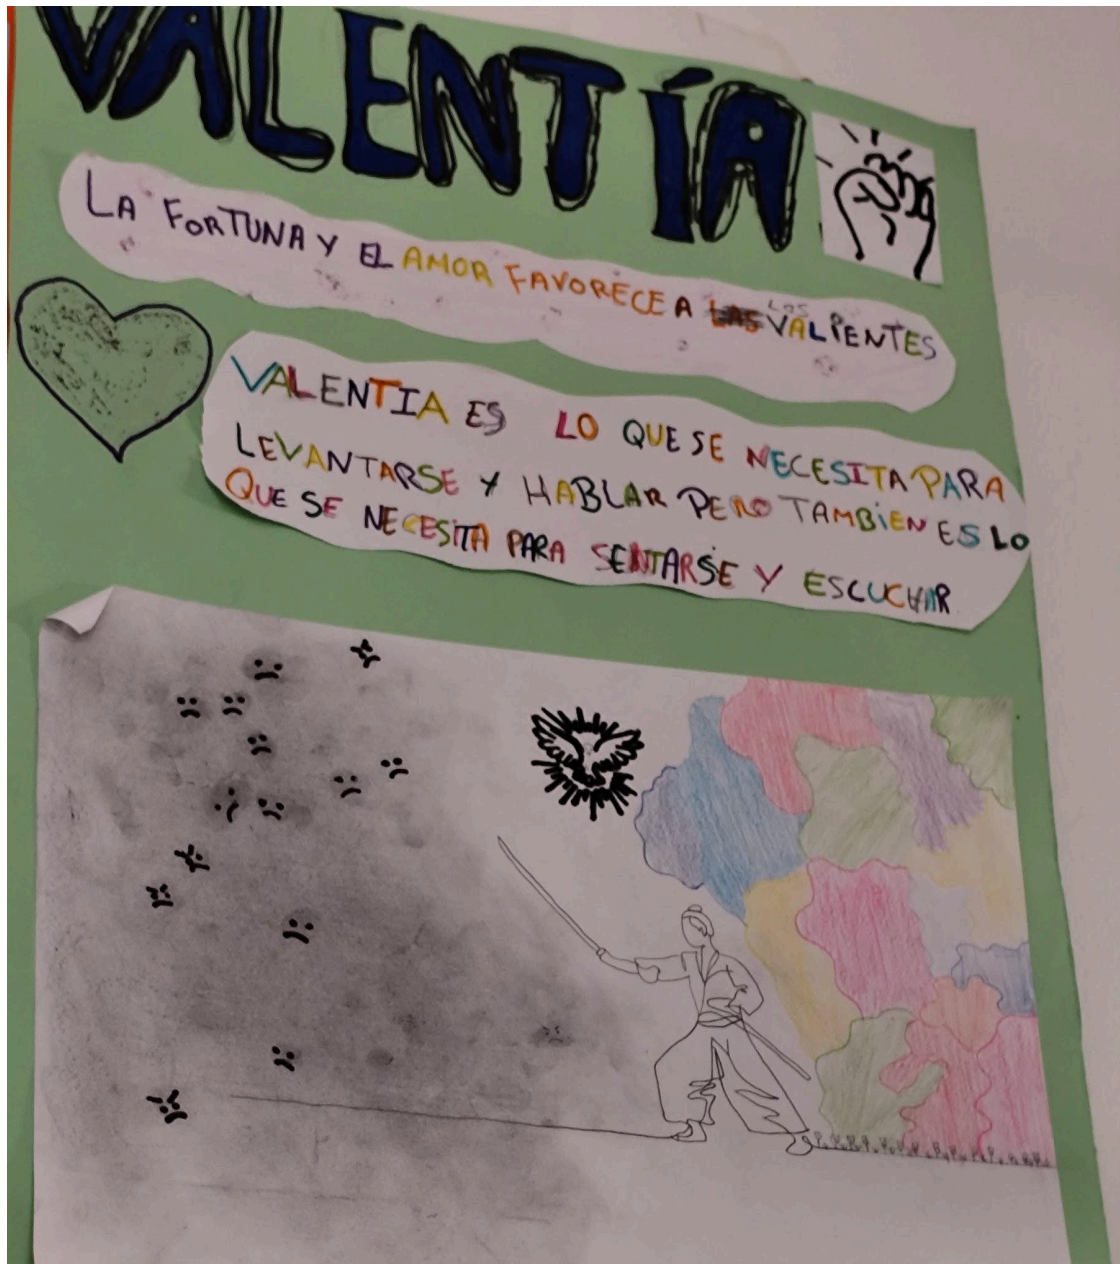 VALENTÍA
LA FORTUNA Y EL AMOR FAVORECE A LOS VALIENTES
VALENTIA ES LO QUE SE NECESITA PARA
LEVANTARSE Y HABLAR PERO TAMBIEN ES LO
QUE SE NECESITA PARA SENTARSE Y ESCUCHAR